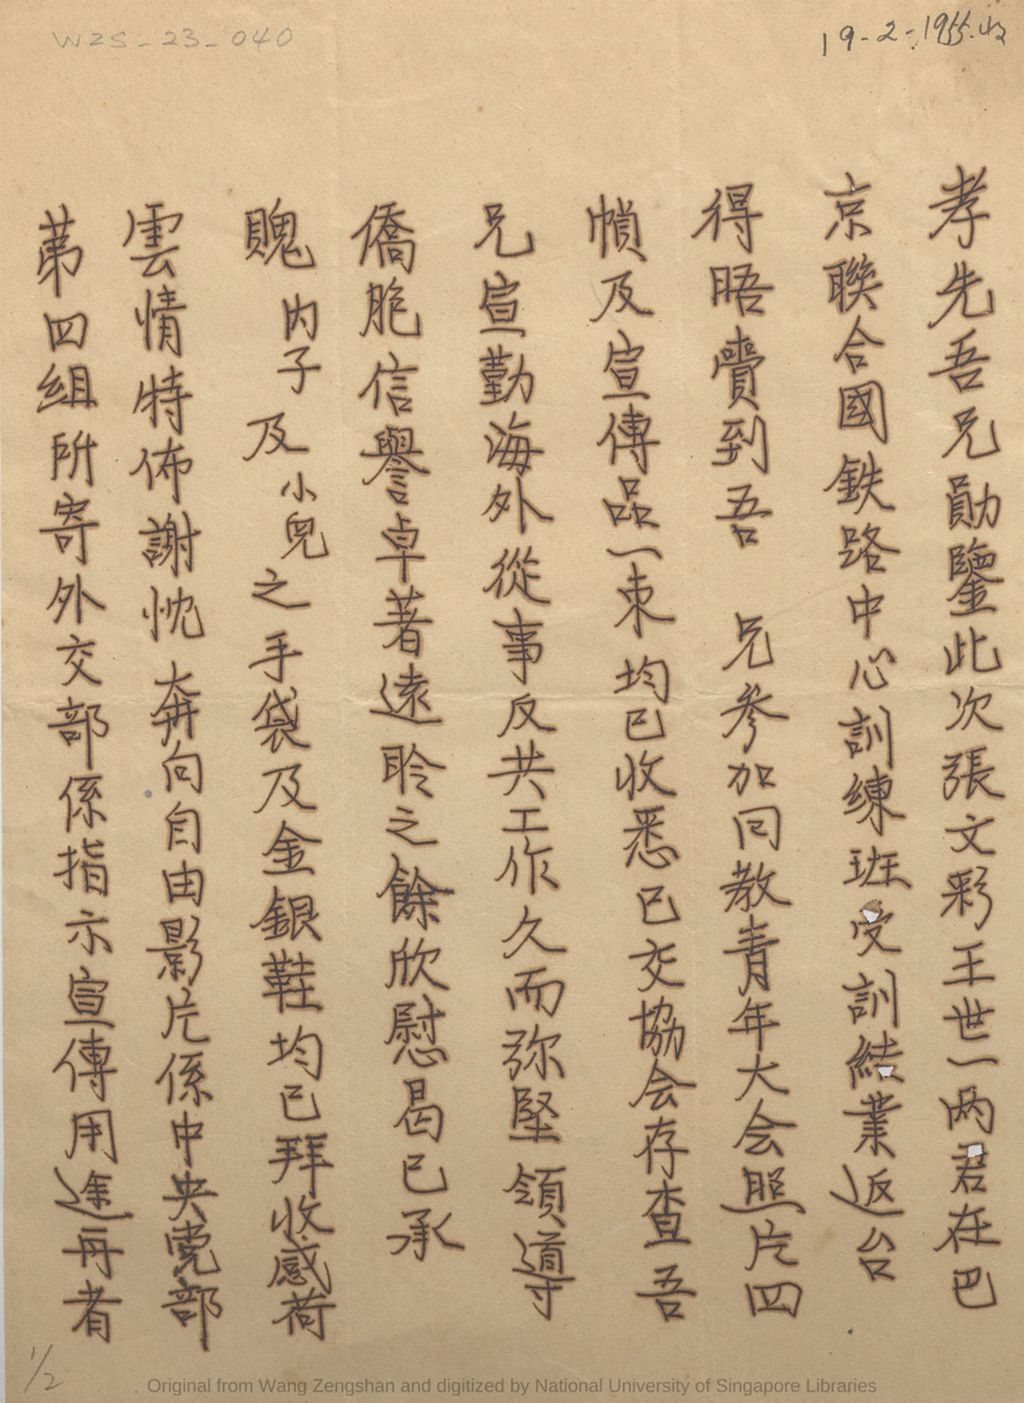 WZS-23-040
19-2-1955收
孝先吾兄勛鑒此次張文彩王世一両君在巴
京聯合國鉄路中心訓練班受訓結業返台
得晤賷到吾 兄參加回教青年大会照片四
幀及宣傳品一束均已收悉已交協会存查吾
兄宣勤海外從事反共工作久而弥堅領導
僑胞信譽卓著遠聆之餘欣慰曷已承
賜內子及小兒之手袋及金銀鞋均已拜收感荷
雲情特佈謝忱奔向自由影片係中央党部
第四組所寄外交部係指示宣傳用途再者
1/2
Original from Wang Zengshan and digitized by National University of Singapore Libraries